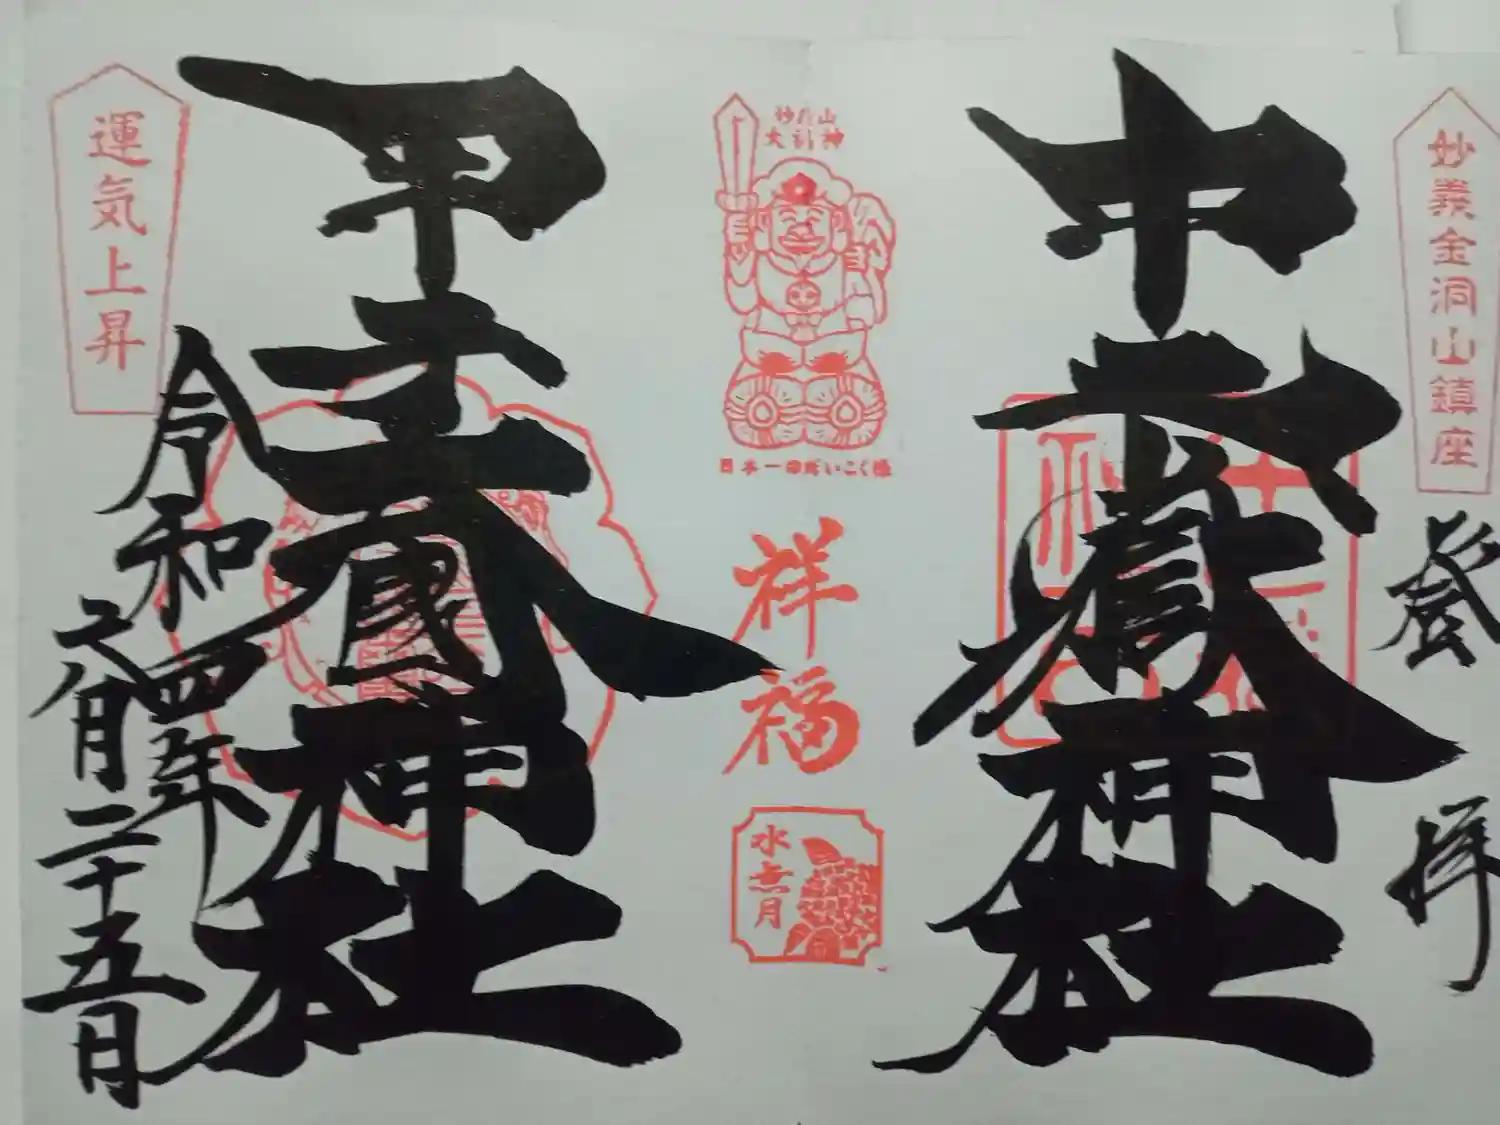 妙義金洞山鎮座
登拝
中之嶽神社
妙義山
大國神
日本一のだいこく様
祥福
水無月
甲子大國神社
運気上昇
令和四年
六月二十五日